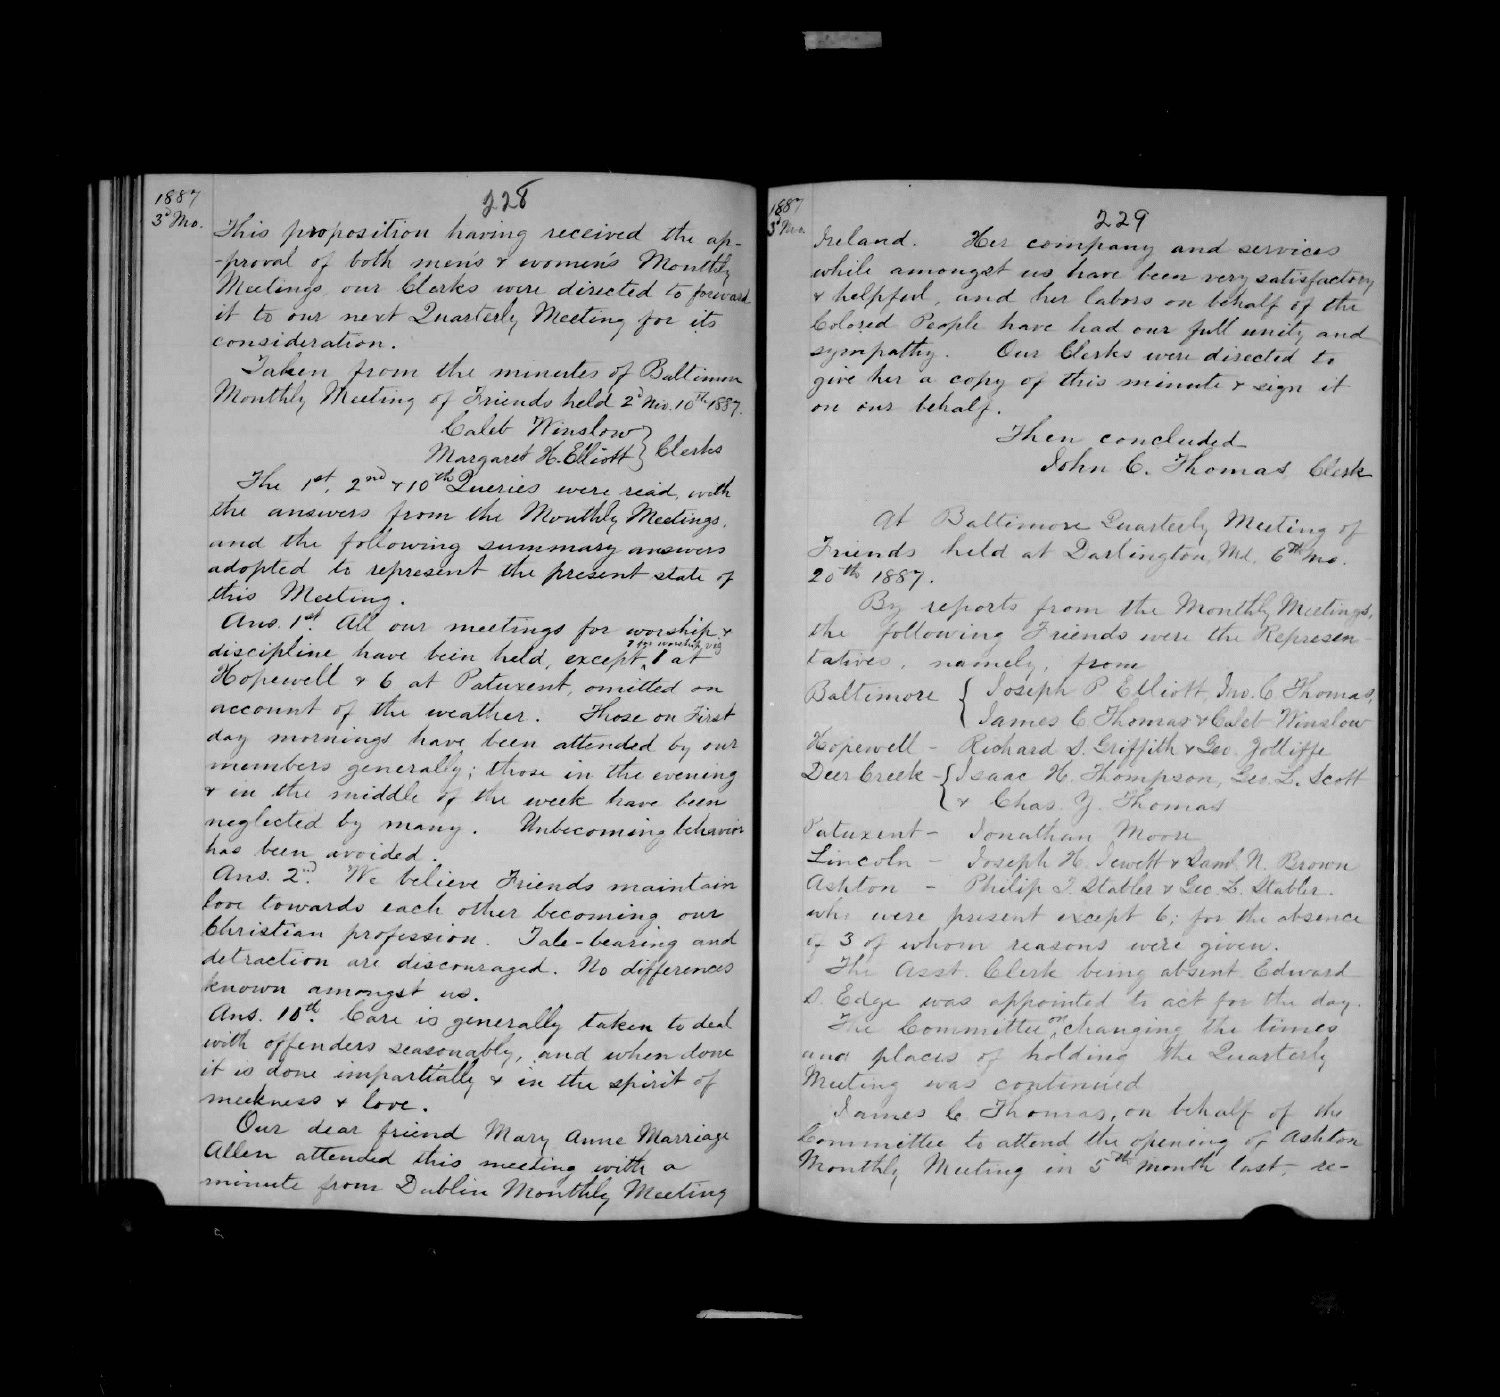 1887
3d Mo.
228
This proposition having received the ap-
-proval of both men's & women's Monthly
Meetings, our Clerks were directed to forward
it to our next Quarterly Meeting for its
consideration.
Taken from the minutes of Baltimore
Monthly Meeting of Friends held 2d Mo. 10th 1887.
Caleb Winslow
Margaret H. Elliott } Clerks
The 1st, 2nd & 10th Queries were read, with
the answers from the Monthly Meetings,
and the following summary answers
adopted to represent the present state of
this Meeting.
Ans. 1st. All our meetings for worship &
7 for worship, viz
discipline have been held, except, 1 at
Hopewell & 6 at Patuxent, omitted on
account of the weather. Those on First
day mornings have been attended by our
members generally; those in the evening
& in the middle of the week have been
neglected by many. Unbecoming behavior
has been avoided.
Ans. 2nd. We believe Friends maintain
love towards each other becoming our
Christian profession. Tale-bearing and
detraction are discouraged. No differences
known amongst us.
Ans. 10th. Care is generally taken to deal
with offenders seasonably, and when done
it is done impartially & in the spirit of
meekness & love.
Our dear friend Mary Anne Marriage
Allen attended this meeting with a
minute from Dublin Monthly Meeting
1887
3d Mo.
229
Ireland. Her company and services
while amongst us have been very satisfactory
& helpful, and her labors on behalf of the
Colored People have had our full unity and
sympathy. Our Clerks were directed to
give her a copy of this minute & sign it
on our behalf.
Then concluded
John C. Thomas Clerk
At Baltimore Quarterly Meeting of
Friends held at Darlington, Md. 6th Mo.
20th 1887.
By reports from the Monthly Meetings,
the following Friends were the Represen-
tatives, namely, from
Baltimore { Joseph P. Elliott, Jno. C. Thomas,
James C. Thomas & Caleb Winslow
Hopewell - Richard S. Griffith & Geo. Jolliffe
Deer Creek - { Isaac H. Thompson, Geo. L. Scott
& Chas. Y. Thomas
Patuxent - Jonathan Moore
Lincoln - Joseph H. Jewett & Saml. N. Brown
Ashton - Philip T. Stabler & Geo. L. Stabler.
who were present except 6; for the absence
of 3 of whom reasons were given.
The Asst. Clerk being absent, Edward
S. Edge was appointed to act for the day.
The Committee on changing the times
and places of holding the Quarterly
Meeting was continued
James C. Thomas, on behalf of the
Committee to attend the opening of Ashton
Monthly Meeting in 5th month last, re-